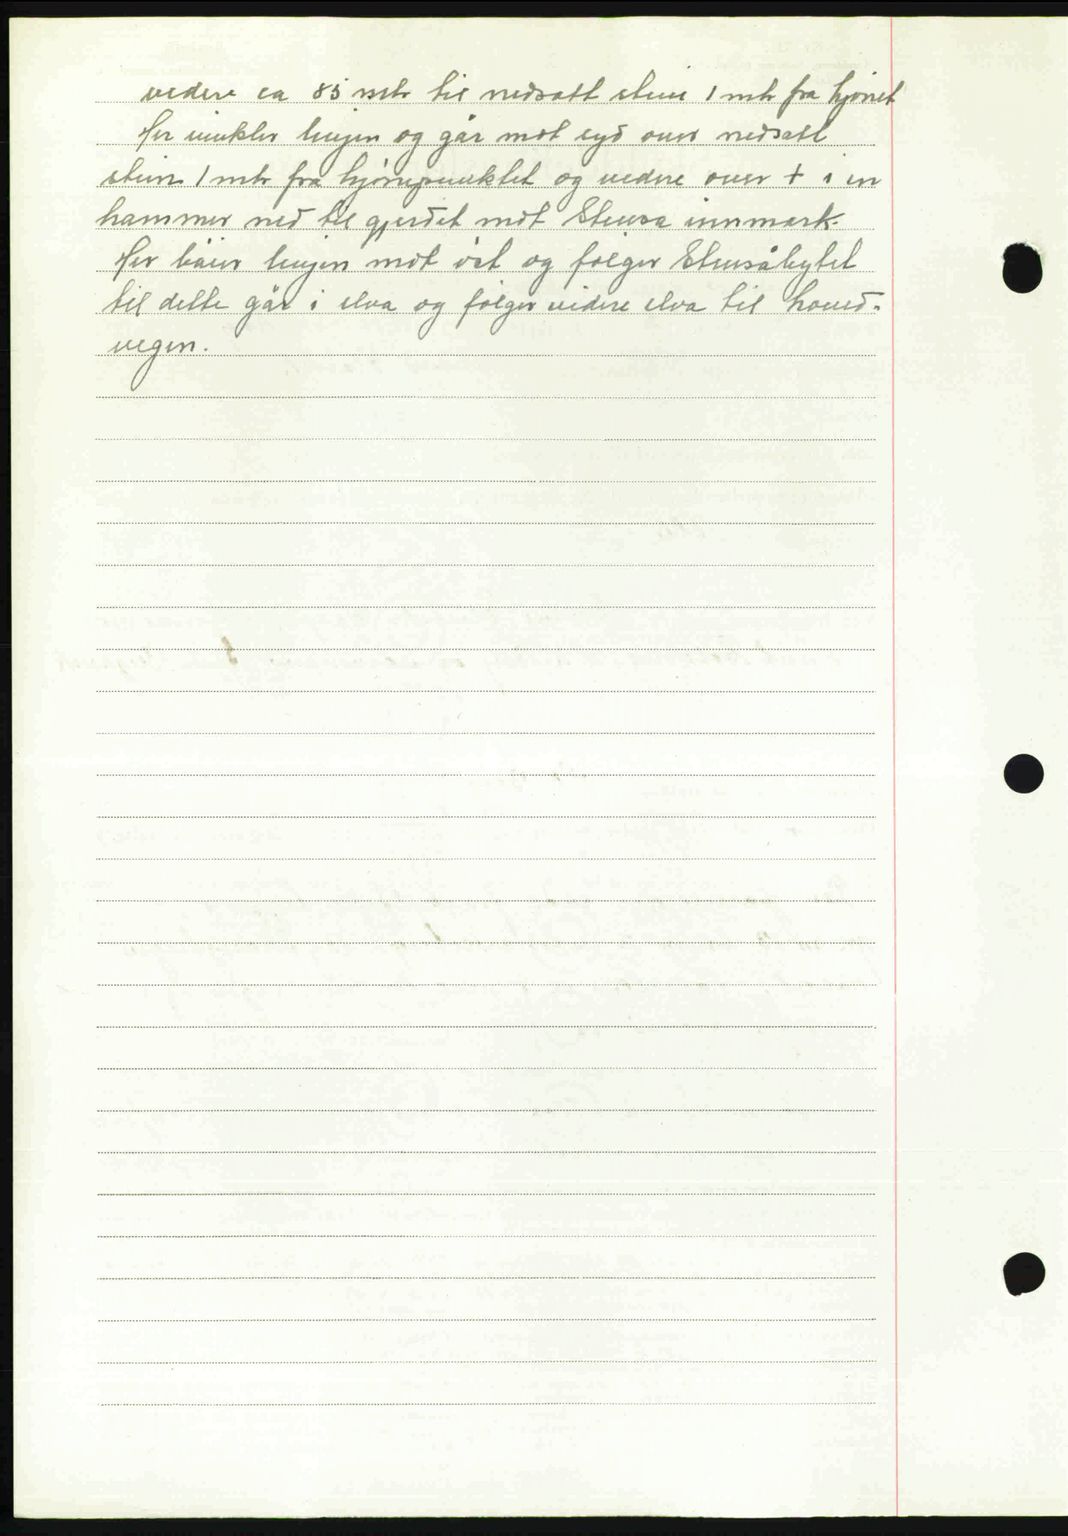 videre ca 85 mtr til nedsatt stein 1 mtr fra hjørnet
Her vinkler linjen og går mot syd over nedsatt
stein 1 mtr fra hjørnepunktet og videre over + i en
hammer ned til gjerdet mot Stensa innmark.
Her bøier linjen mot øst og følger Stensåbytet
til dette går i elva og følger videre elva til hoved-
vegen.